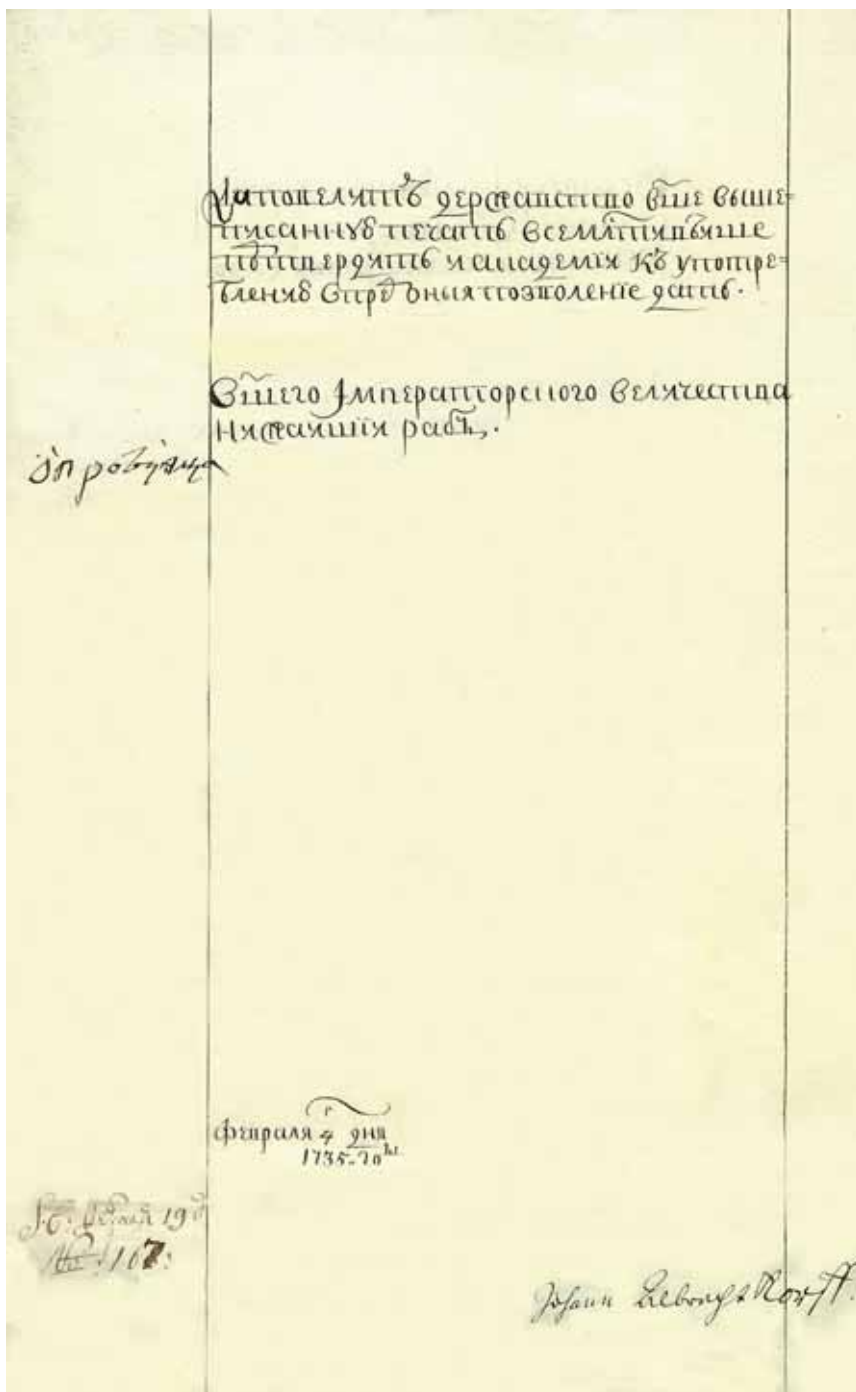 Да повелитъ державство вше выше-
писанную печать всемлтивѣише
потвердить и академіи къ употре-
бленію позволение дать.
Вшего Імператорского величества
нижаишіи рабъ.
опробуэтца
февраля 4 дня
1735. го
19
№: 167:
Johann Albrecht Korff.